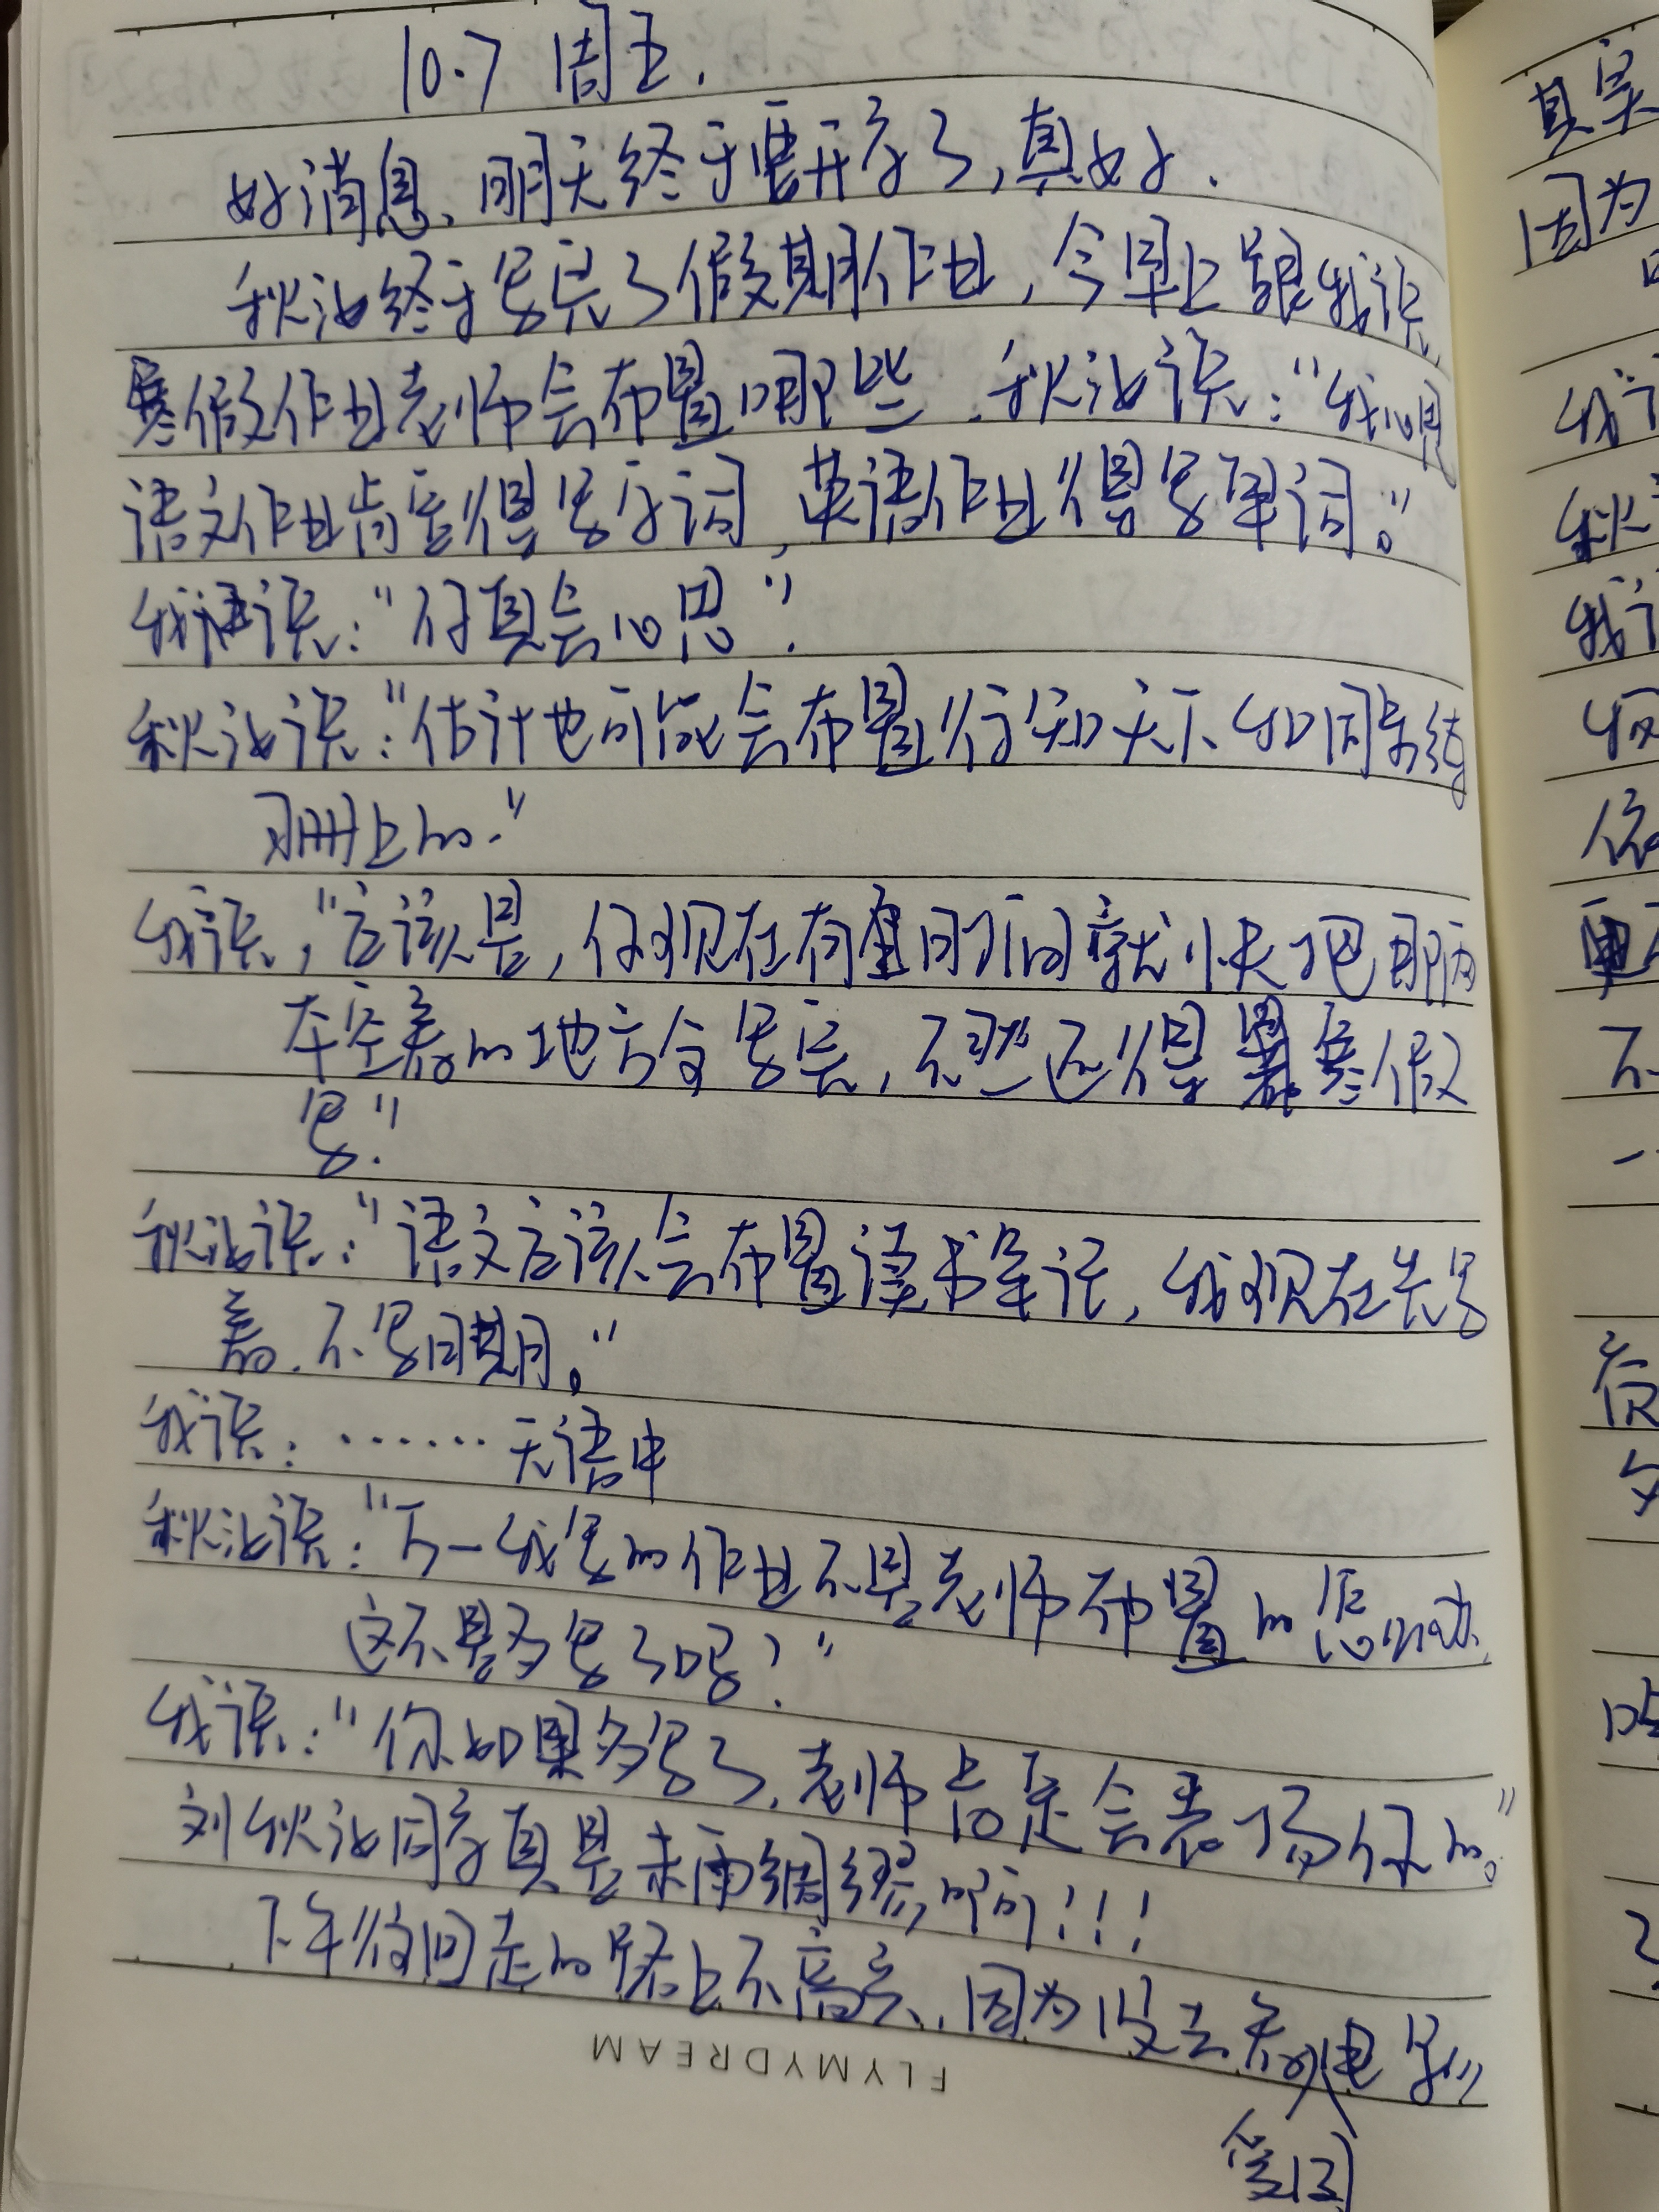 10.7 周五.
好消息、明天终于要开学了,真好.
秋池终于写完了假期作业,今早上跟我说,
寒假作业老师会布置哪些.秋池说:“我想
语文作业肯定得写字词,英语作业得写单词。”
我说:“你真会心思”.
秋池说:“估计也可能会布置行知天下和同步练
习册上的.”
我说,“应该是,你现在有时间就快把那两
本空着的地方全写完,不然还得寒假
写.”
秋池说:“语文应该会布置读书笔记,我现在先写
着.不写日期。”
我说:……无语中
秋池说:“万一我写的作业不是老师布置的怎么办,
这不是多写了吗?”
我说:“你如果多写了,老师肯定会表扬你的。”
刘秋池同学真是未雨绸缪,呵呵!!!
下午往回走的路上不高兴,因为没去看电影
第13
FLYMYDREAM
真实
因为
我说
秋
我说